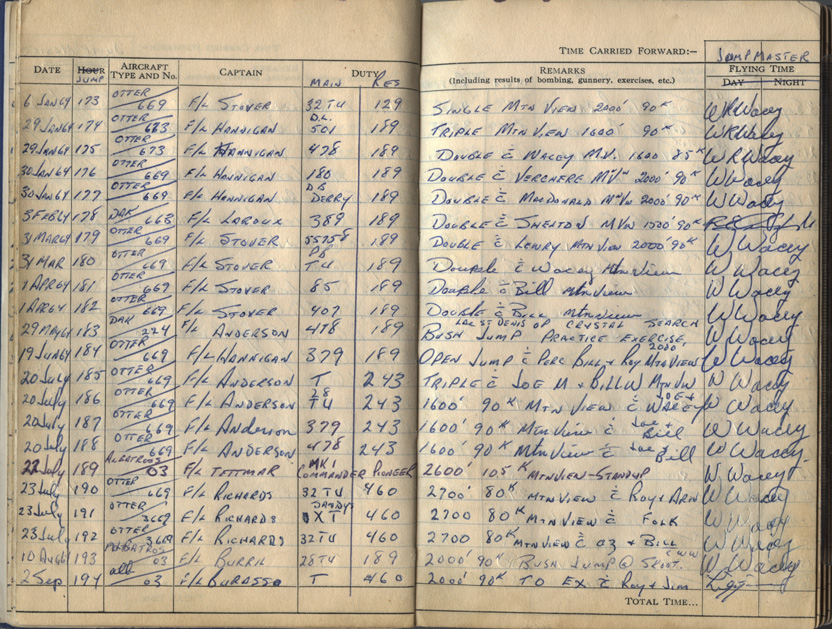 TIME CARRIED FORWARD:— JUMPMASTER
DATE HOUR JUMP AIRCRAFT TYPE AND NO. CAPTAIN MAIN DUTY RES REMARKS (Including results of bombing, gunnery, exercises, etc.) FLYING TIME DAY NIGHT
6 JAN 64 173 OTTER 669 F/L STOVER 32 TU 129 SINGLE MTN VIEW 2000' 90K W R Wacey
29 JAN 64 174 OTTER 673 F/L HANNIGAN D.L. 501 189 TRIPLE MTN VIEW 1600' 90K W R Wacey
29 JAN 64 175 OTTER 673 F/L HANNIGAN 478 189 DOUBLE C̄ WACEY M.V. 1600 85K W R Wacey
30 JAN 64 176 OTTER 669 F/L HANNIGAN 180 189 DOUBLE C̄ VERCHERE MVW 2000' 90K W Wacey
30 JAN 64 177 OTTER 669 F/L HANNIGAN DB DERRY 189 DOUBLE C̄ MACDONALD MVW 2000' 90K W Wacey
5 FEB 64 178 DAK 663 F/L LAROUX 389 189 DOUBLE C̄ SHENTON MVW 1500' 90K
31 MAR 64 179 OTTER 669 F/L STOVER 55758 189 DOUBLE C̄ LOWRY MTN VIEW 2000' 90K W Wacey
31 MAR 180 OTTER 669 F/L STOVER PB TU 189 Double C̄ Wacey Mtn View W Wacey
1 APR 64 181 OTTER 669 F/L STOVER 85 189 Double C̄ Bill Mtn View W Wacey
1 APR 64 182 OTTER 669 F/L STOVER 407 189 Double C̄ BILL Mtn View W Wacey
29 MAY 64 183 DAK 224 F/L ANDERSON 478 189 LAC ST DENIS OP CRYSTAL SEARCH BUSH JUMP PRACTICE EXERCISE, W Wacey
19 JUN 64 184 OTTER 669 F/L HANNIGAN 379 189 OPEN JUMP C̄ PERC BILL + ROY MTN VIEW 2000' W Wacey
20 July 185 OTTER 669 F/L ANDERSON T 243 TRIPLE C̄ JOE M + BILL W MTN VW W Wacey
20 July 186 OTTER 669 F/L ANDERSON 28 TU 243 1600' 90K MTN VIEW C̄ JOE + WACEY W Wacey
20 July 187 OTTER 669 F/L Anderson 379 243 1600' 90K Mtn View C̄ Joe + Bill W Wacey
20 July 188 OTTER 669 F/L ANDERSON 478 243 1600' 90K Mtn View C̄ Joe + Bill W Wacey
22 July 189 ALBATROSS 03 F/L TETTMAR MK I COMMANDER PIONEER 2600' 105K MTN VIEW - STANDUP W Wacey
23 July 190 OTTER 669 F/L RICHARDS 32 TU 460 2700' 80K MTN VIEW C̄ ROY + ARN W Wacey
23 July 191 OTTER 3669 F/L RICHARDS SANDYS XT 460 2700 80K MTN VIEW C̄ FOLK W Wacey
23 July 192 OTTER 3669 F/L RICHARDS 32 TU 460 2700 80K MTN VIEW C̄ OZ + BILL W Wacey
10 AUG 64 193 ALBATROSS 03 F/L BURRIL 28 TU 189 2000' 90K BUSH JUMP @ W Wacey
2 Sep 194 alb 03 F/L BURASSA T 460 2000' 90K TO EX C̄ Roy + Jim
TOTAL TIME...